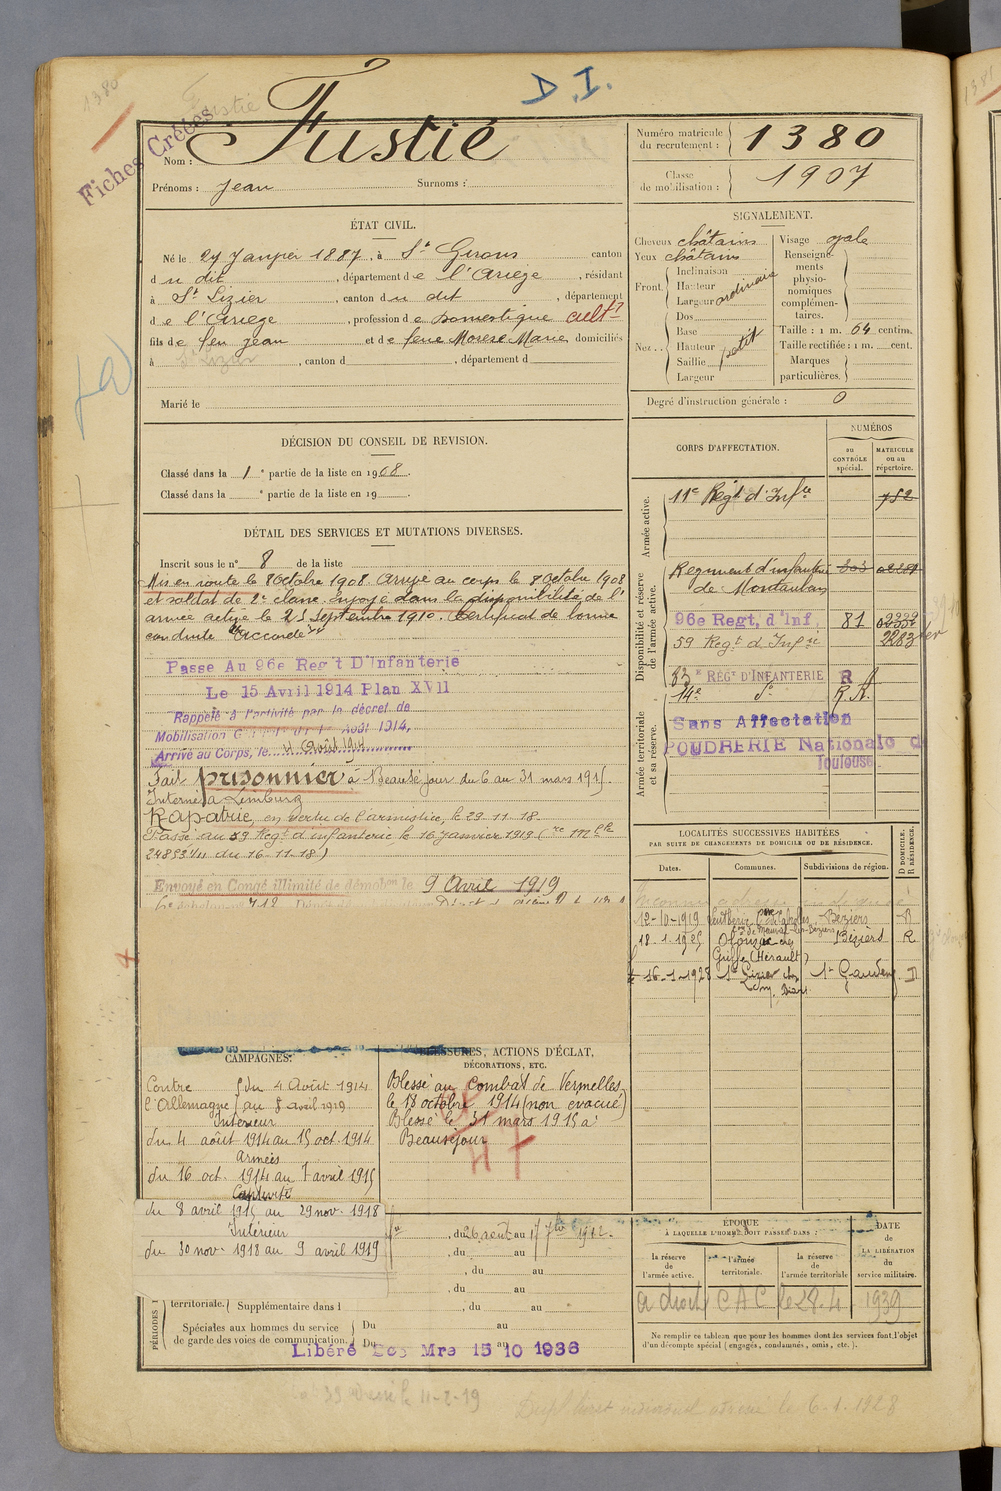 1380
D.I.
Fiches Créées
Nom : Fustié
Prénoms : Jean Surnoms :
Numéro matricule du recrutement : 1380
Classe de mobilisation : 1907
ÉTAT CIVIL.
Né le 27 Janvier 1887, à St Girons canton
du dit, département de l'Ariège, résidant
à St Lizier, canton du dit, département
de l'Ariège, profession de domestique cultr
fils de feu Jean et de feue Morere Marie domiciliés
à St Lizier, canton d , département d
Marié le
SIGNALEMENT.
Cheveux châtains
Yeux châtains
Front. Inclinaison
Hauteur
Largeur ordinaire
Nez. Dos
Base
Hauteur petit
Saillie
Largeur
Visage ovale
Renseignements physionomiques complémentaires.
Taille : 1 m. 64 centim.
Taille rectifiée : 1 m. cent.
Marques particulières.
Degré d'instruction générale : 0
DÉCISION DU CONSEIL DE REVISION.
Classé dans la 1e partie de la liste en 1908.
Classé dans la e partie de la liste en 19 .
DÉTAIL DES SERVICES ET MUTATIONS DIVERSES.
Inscrit sous le n° 8 de la liste
Mis en route le 8 Octobre 1908. Arrivé au corps le 8 Octobre 1908
et soldat de 2e classe. Envoyé dans la disponibilité de l'
armée active le 25 Septembre 1910. Certificat de bonne
conduite "Accordé"
Passé Au 96e Reg't D'Infanterie
Le 15 Avril 1914 Plan XVII
Rappelé à l'activité par le décret de
Mobilisation Août 1914,
Arrivé au Corps, le 4 Août 1914
Fait prisonnier à Beauséjour du 6 au 31 mars 1915.
Interné à Limburg
Rapatrié, en vertu de l'armistice, le 29.11.18.
Passé au 59 Régt d'infanterie le 16 Janvier 1919
24853 1/11 du 16-11-18)
Envoyé en Congé illimité de démobon le 9 Avril 1919
CORPS D'AFFECTATION.
NUMÉROS
au CONTRÔLE spécial.
MATRICULE ou au répertoire.
Armée active.
11e Régt d'Infie 752
Disponibilité et réserve de l'armée active.
Régiment d'infanterie
de Montauban
96e Regt, d'Inf. 81
59 Regt d'Infie 2283
83e RÉGt D'INFANTERIE R
14e do R.A.
Armée territoriale et sa réserve.
Sans Affectation
POUDRERIE Nationale d
Toulouse
LOCALITÉS SUCCESSIVES HABITÉES
PAR SUITE DE CHANGEMENTS DE DOMICILE OU DE RÉSIDENCE.
Dates. Communes. Subdivisions de région. D DOMICILE. R RÉSIDENCE.
12-10-1919 Béziers R
18.1.1925 Olonzac Béziers R
(Hérault)
16-1-1928 St Lizier St Gaudens D
CAMPAGNES.
Contre l'Allemagne du 4 Août 1914
au 8 avril 1919
Intérieur
du 4 août 1914 au 15 oct. 1914
Armées
du 16 oct. 1914 au 7 avril 1915
Captivité
du 8 avril 1915 au 29 nov. 1918
Intérieur
du 30 nov. 1918 au 9 avril 1919
BLESSURES, ACTIONS D'ÉCLAT, DÉCORATIONS, ETC.
Blessé au combat de Vermelles
le 18 octobre 1914 (non évacué)
Blessé le 31 mars 1915 à
Beauséjour
, du 26 août au 17 7bre 1912.
, du au
, du au
, du au
PÉRIODES
territoriale. Supplémentaire dans l , du au
Spéciales aux hommes du service de garde des voies de communication. Du au
Du au
Libéré Mre 15 10 1936
ÉPOQUE
À LAQUELLE L'HOMME DOIT PASSER DANS :
la réserve de l'armée active.
l'armée territoriale.
la réserve de l'armée territoriale
DATE DE LA LIBÉRATION du service militaire.
a droit CAC le 28.4. 1939
Ne remplir ce tableau que pour les hommes dont les services font l'objet
d'un décompte spécial (engagés, condamnés, omis, etc.).